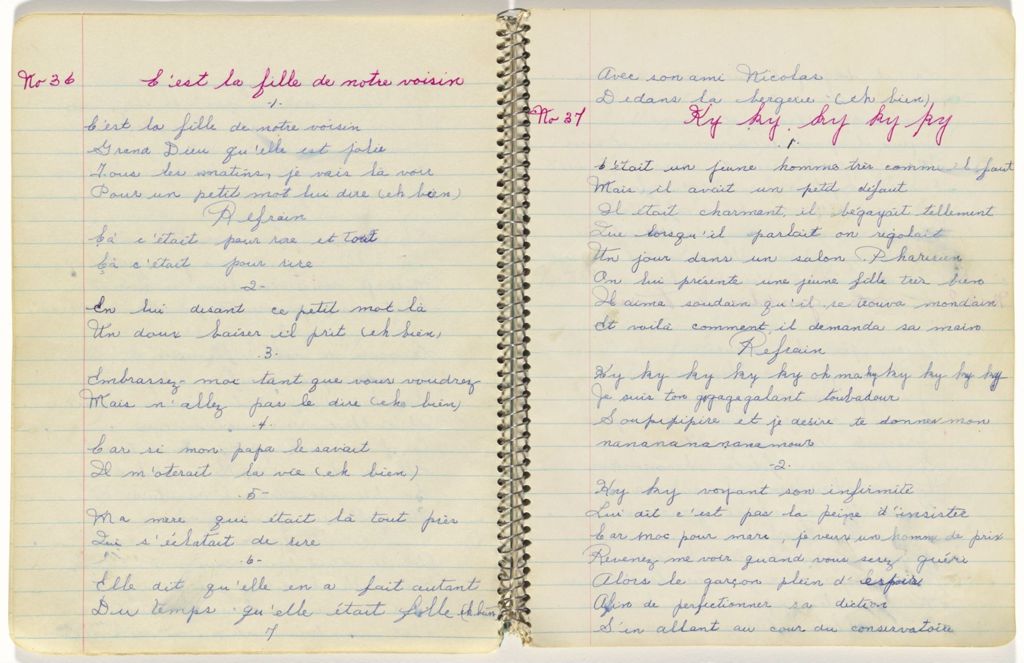 No 36 C'est la fille de notre voisin
-1.
C'est la fille de notre voisin
Grand Dieu qu'elle est jolie
Tous les matins, je vais la voir
Pour un petit mot lui dire (eh bien)
Refrain
Çà c'était pour rire et tout
Çà c'était pour rire
-2-
En lui disant ce petit mot là
Un doux baiser il prit (eh bien)
.3.
Embrassez-moi tant que vous voudrez
Mais n'allez pas le dire (eh bien)
.4.
Car si mon papa le savait
Il m'oterait la vie (eh bien)
.5-
Ma mere qui était là tout près
Qui s'éclatait de rire
-6-
Elle dit qu'elle en a fait autant
Du temps qu'elle était folle (eh bien
7
Avec son ami Nicolas
Dedans la bergerie (eh bien)
No 37 Ky ky ky ky ky
.1.
C'était un jeune homme très comme il faut
Mais il avait un petit défaut
Il était charmant, il bégayait tellement
Que lorsqu'il parlait on rigolait
Un jour dans un salon
On lui présente une jeune fille très bien
Il aima soudain qu'il se trouva mondain
Et voilà comment il demanda sa main
Refrain
Ky ky ky ky ky oh ma ky ky ky ky ky
Je suis ton gagagagalant toubadour
Soupipipipire et je désire te donner mon
nanananananamour
-2.
Ky ky voyant son infirmité
Lui dit c'est pas la peine d'insister
Car moi pour mari, je veux un homme de prix
Revenez me voir quand vous serez guéri
Alors le garçon plein d'espoirs
Afin de perfectionner sa diction
S'en allant au cour du conservatoire